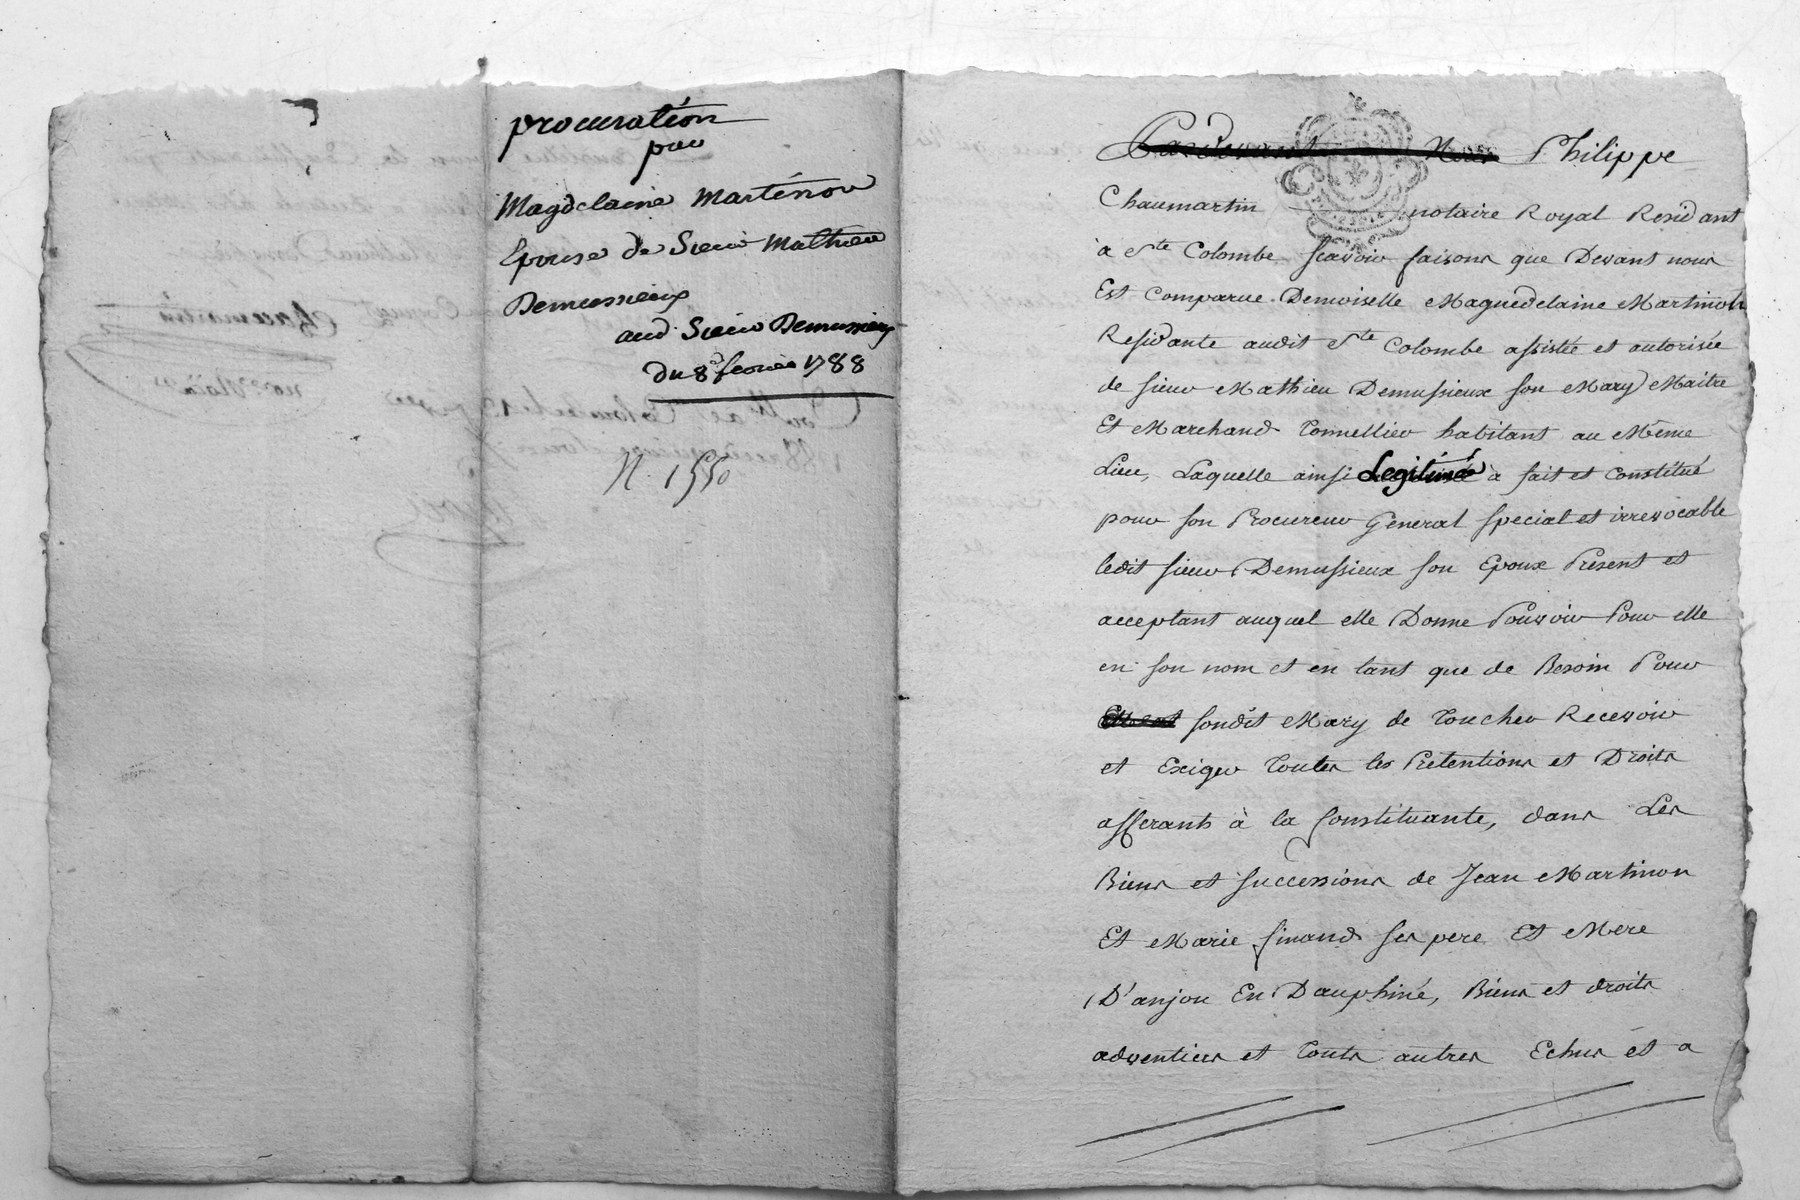 procuration
par
Magdelaine Martinon
Epouse de Sieur Mathieu
Demussieux
aud. Sieur Demussieux
du 8e fevrier 1788
N. 1550
Pardevant Nous Philippe
Chaumartin notaire Royal Residant
à Ste Colombe scavoir faisons que Devant nous
Est Comparue Demoiselle Maguedelaine Martinon
Residante audit Ste Colombe assistée et autorisée
de sieur Mathieu Demussieux son Mary Maitre
Et Marchand Tonnellier habitant au Même
Lieu, Laquelle ainsi Legitimée à fait et Constitué
pour son Procureur General special et irrevocable
ledit sieur Demussieux son Epoux Present et
acceptant auquel elle Donne Pouvoir Pour elle
en son nom et en tant que de Besoin Pour
sondit Mary de Toucher Recevoir
et Exiger Toutes les Pretentions et Droits
afferants à la Constituante, dans Les
Biens et successions de Jean Martinon
Et Marie finand ses pere Et Mere
D'anjou En Dauphiné, Biens et droits
adventices et Touts autres Echus et a